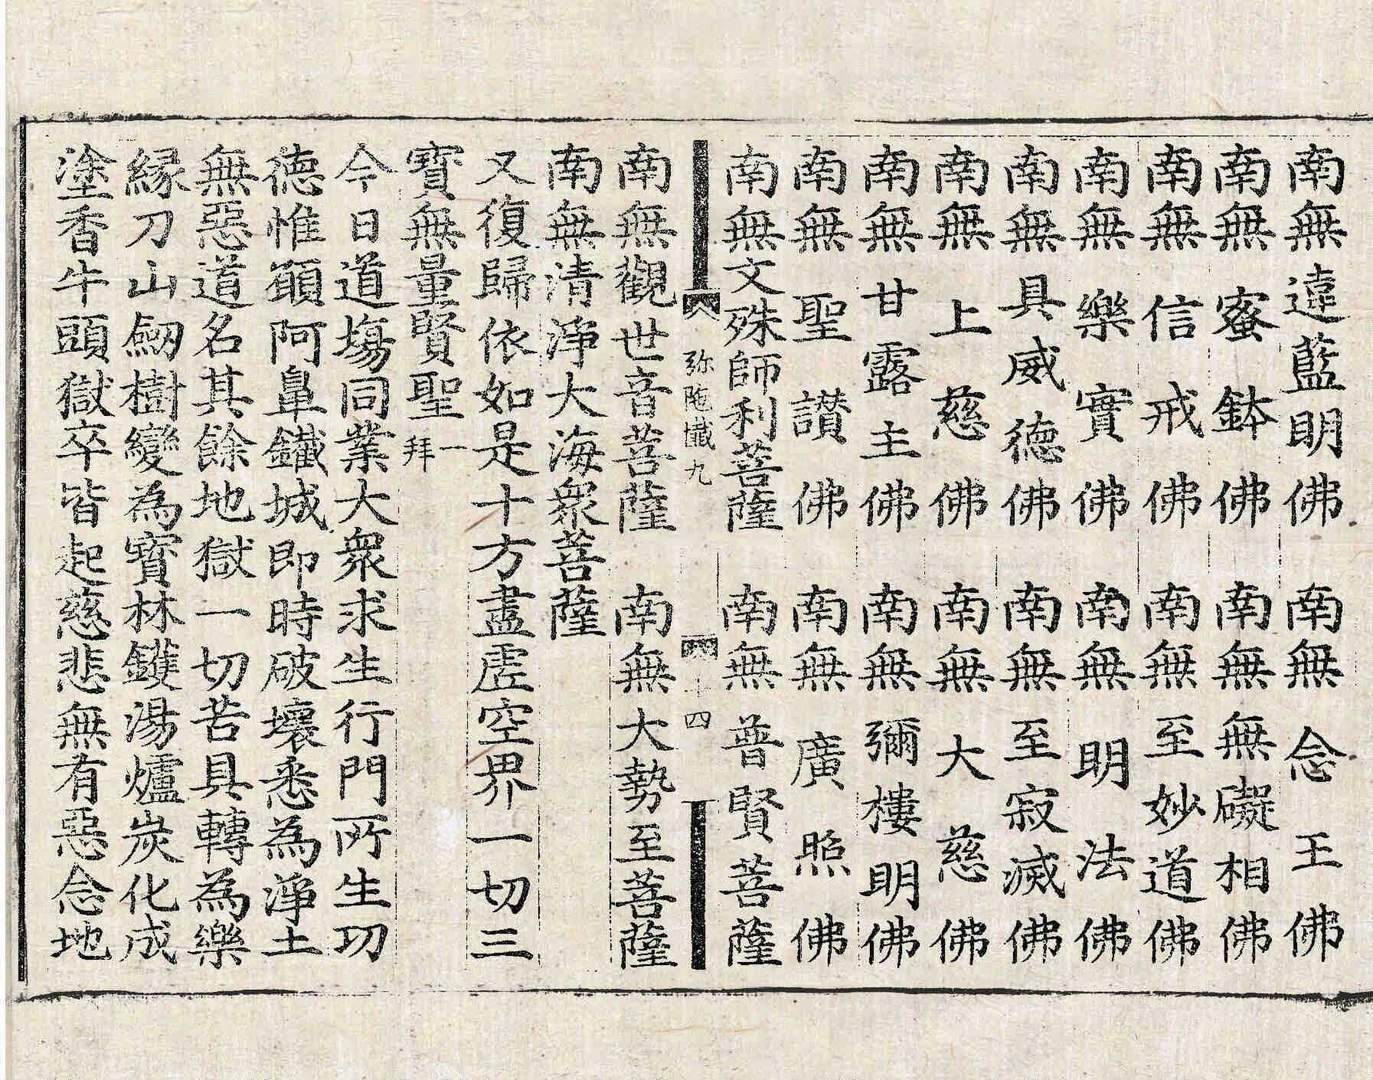 南無遠藍明佛　南無念王佛
南無蜜鉢佛　南無無礙相佛
南無信戒佛　南無至妙道佛
南無樂實佛　南無明法佛
南無具威德佛　南無至寂滅佛
南無上慈佛　南無大慈佛
南無甘露主佛　南無彌樓明佛
南無聖讃佛　南無廣照佛
南無文殊師利菩薩　南無普賢菩薩
弥陁懺九　四
南無觀世音菩薩　南無大勢至菩薩
南無清淨大海衆菩薩
又復歸依如是十方盡虛空界一切三
寶無量賢聖一拜
今日道塲同業大衆求生行門所生功
德惟願阿鼻鐵城即時破壞悉為淨土
無惡道名其餘地獄一切苦具轉為樂
緣刀山劒樹變為寶林鑊湯爐炭化成
塗香牛頭獄卒皆起慈悲無有惡念地